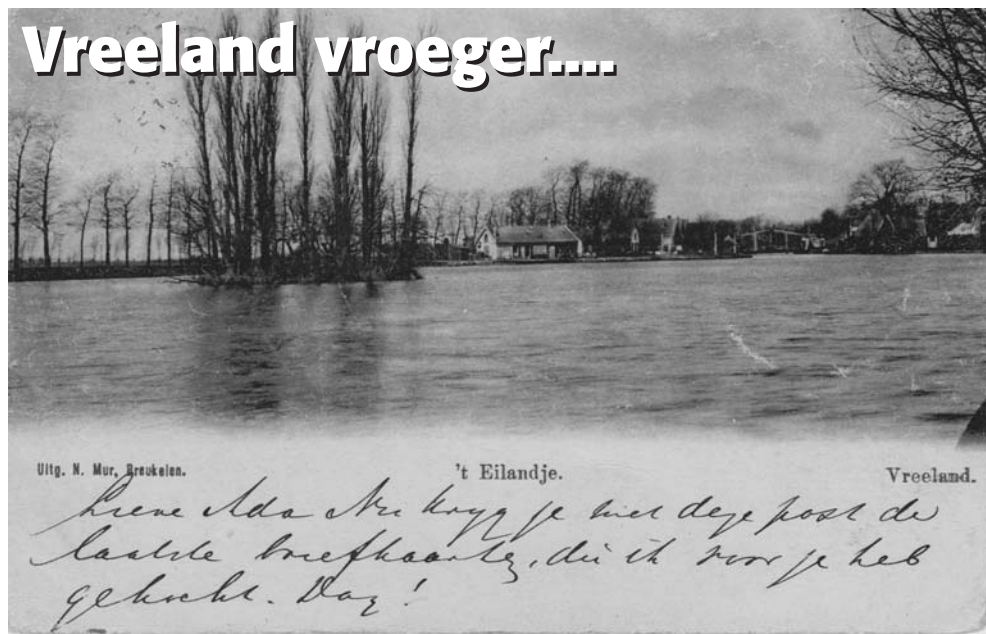 Vreeland vroeger....
Uitg. N. Mur, Breukelen.
't Eilandje.
Vreeland.
Lieve Ada Nu krijg je met deze post de
laatste briefkaarten, die ik voor je heb
gekocht. Dag!